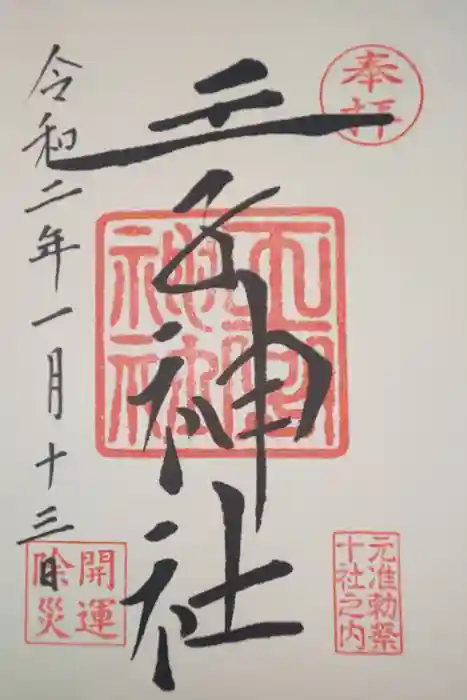 奉拝
元准勅祭
十社之内
王子神社
王子
神社
令和二年一月十三日
開運
除災